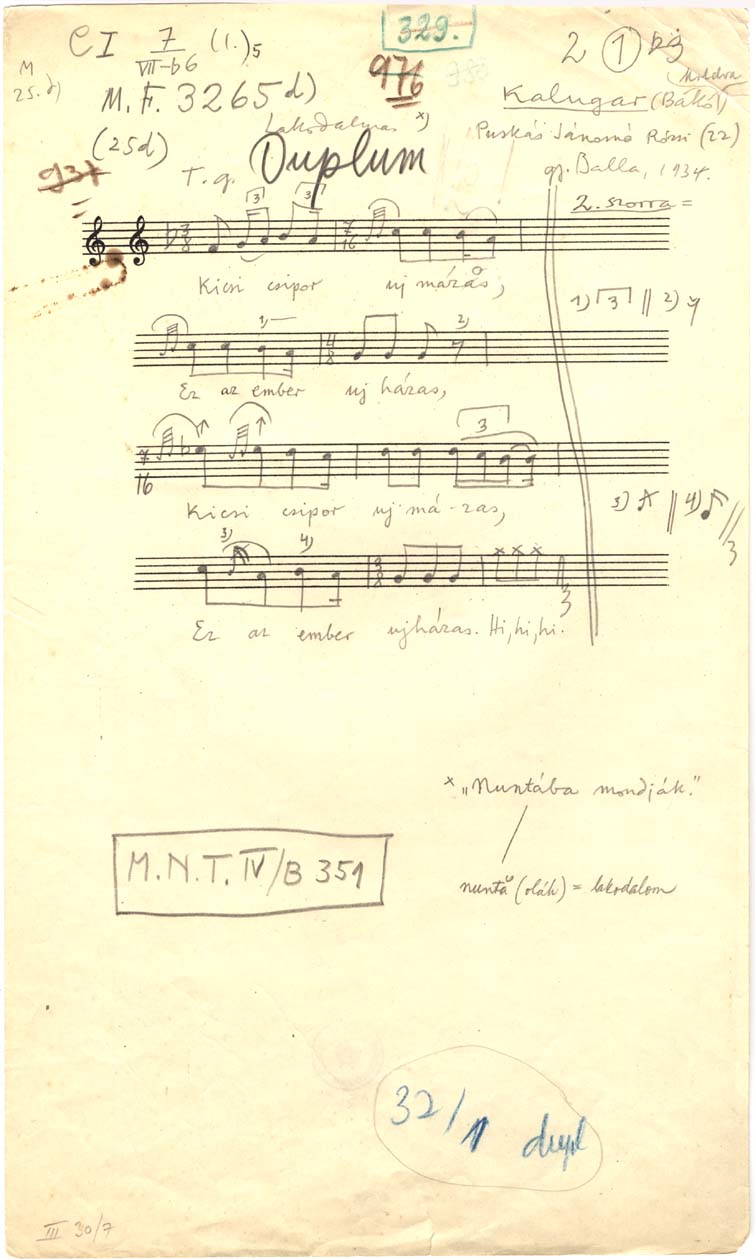 329.
C I 7 (1.)5
VII-b6
2 1 b3
976
M
25.d)
M.F. 3265 d)
Moldva
Kalugar (Bákó)
lakodalmas x)
(25d)
T. q. Duplum
Puskás Jánosné Rózsi (22)
gy. Balla, 1934.
937
2. szorra =
3 3
3/8 7/16
Kicsi csipor uj mázas,
1) 3 || 2) γ
1) 2)
4/8
Ez az ember uj házas,
3
7/16
Kicsi csipor uj má-zas,
3) || 4)
3
3) 4)
3/8
3
Ez az ember ujházas. Hi, hi, hi.
x "Nuntába mondják."
M.N.T. IV/B 351
nuntă (oláh) = lakodalom
32/1 dupl
III 30/7